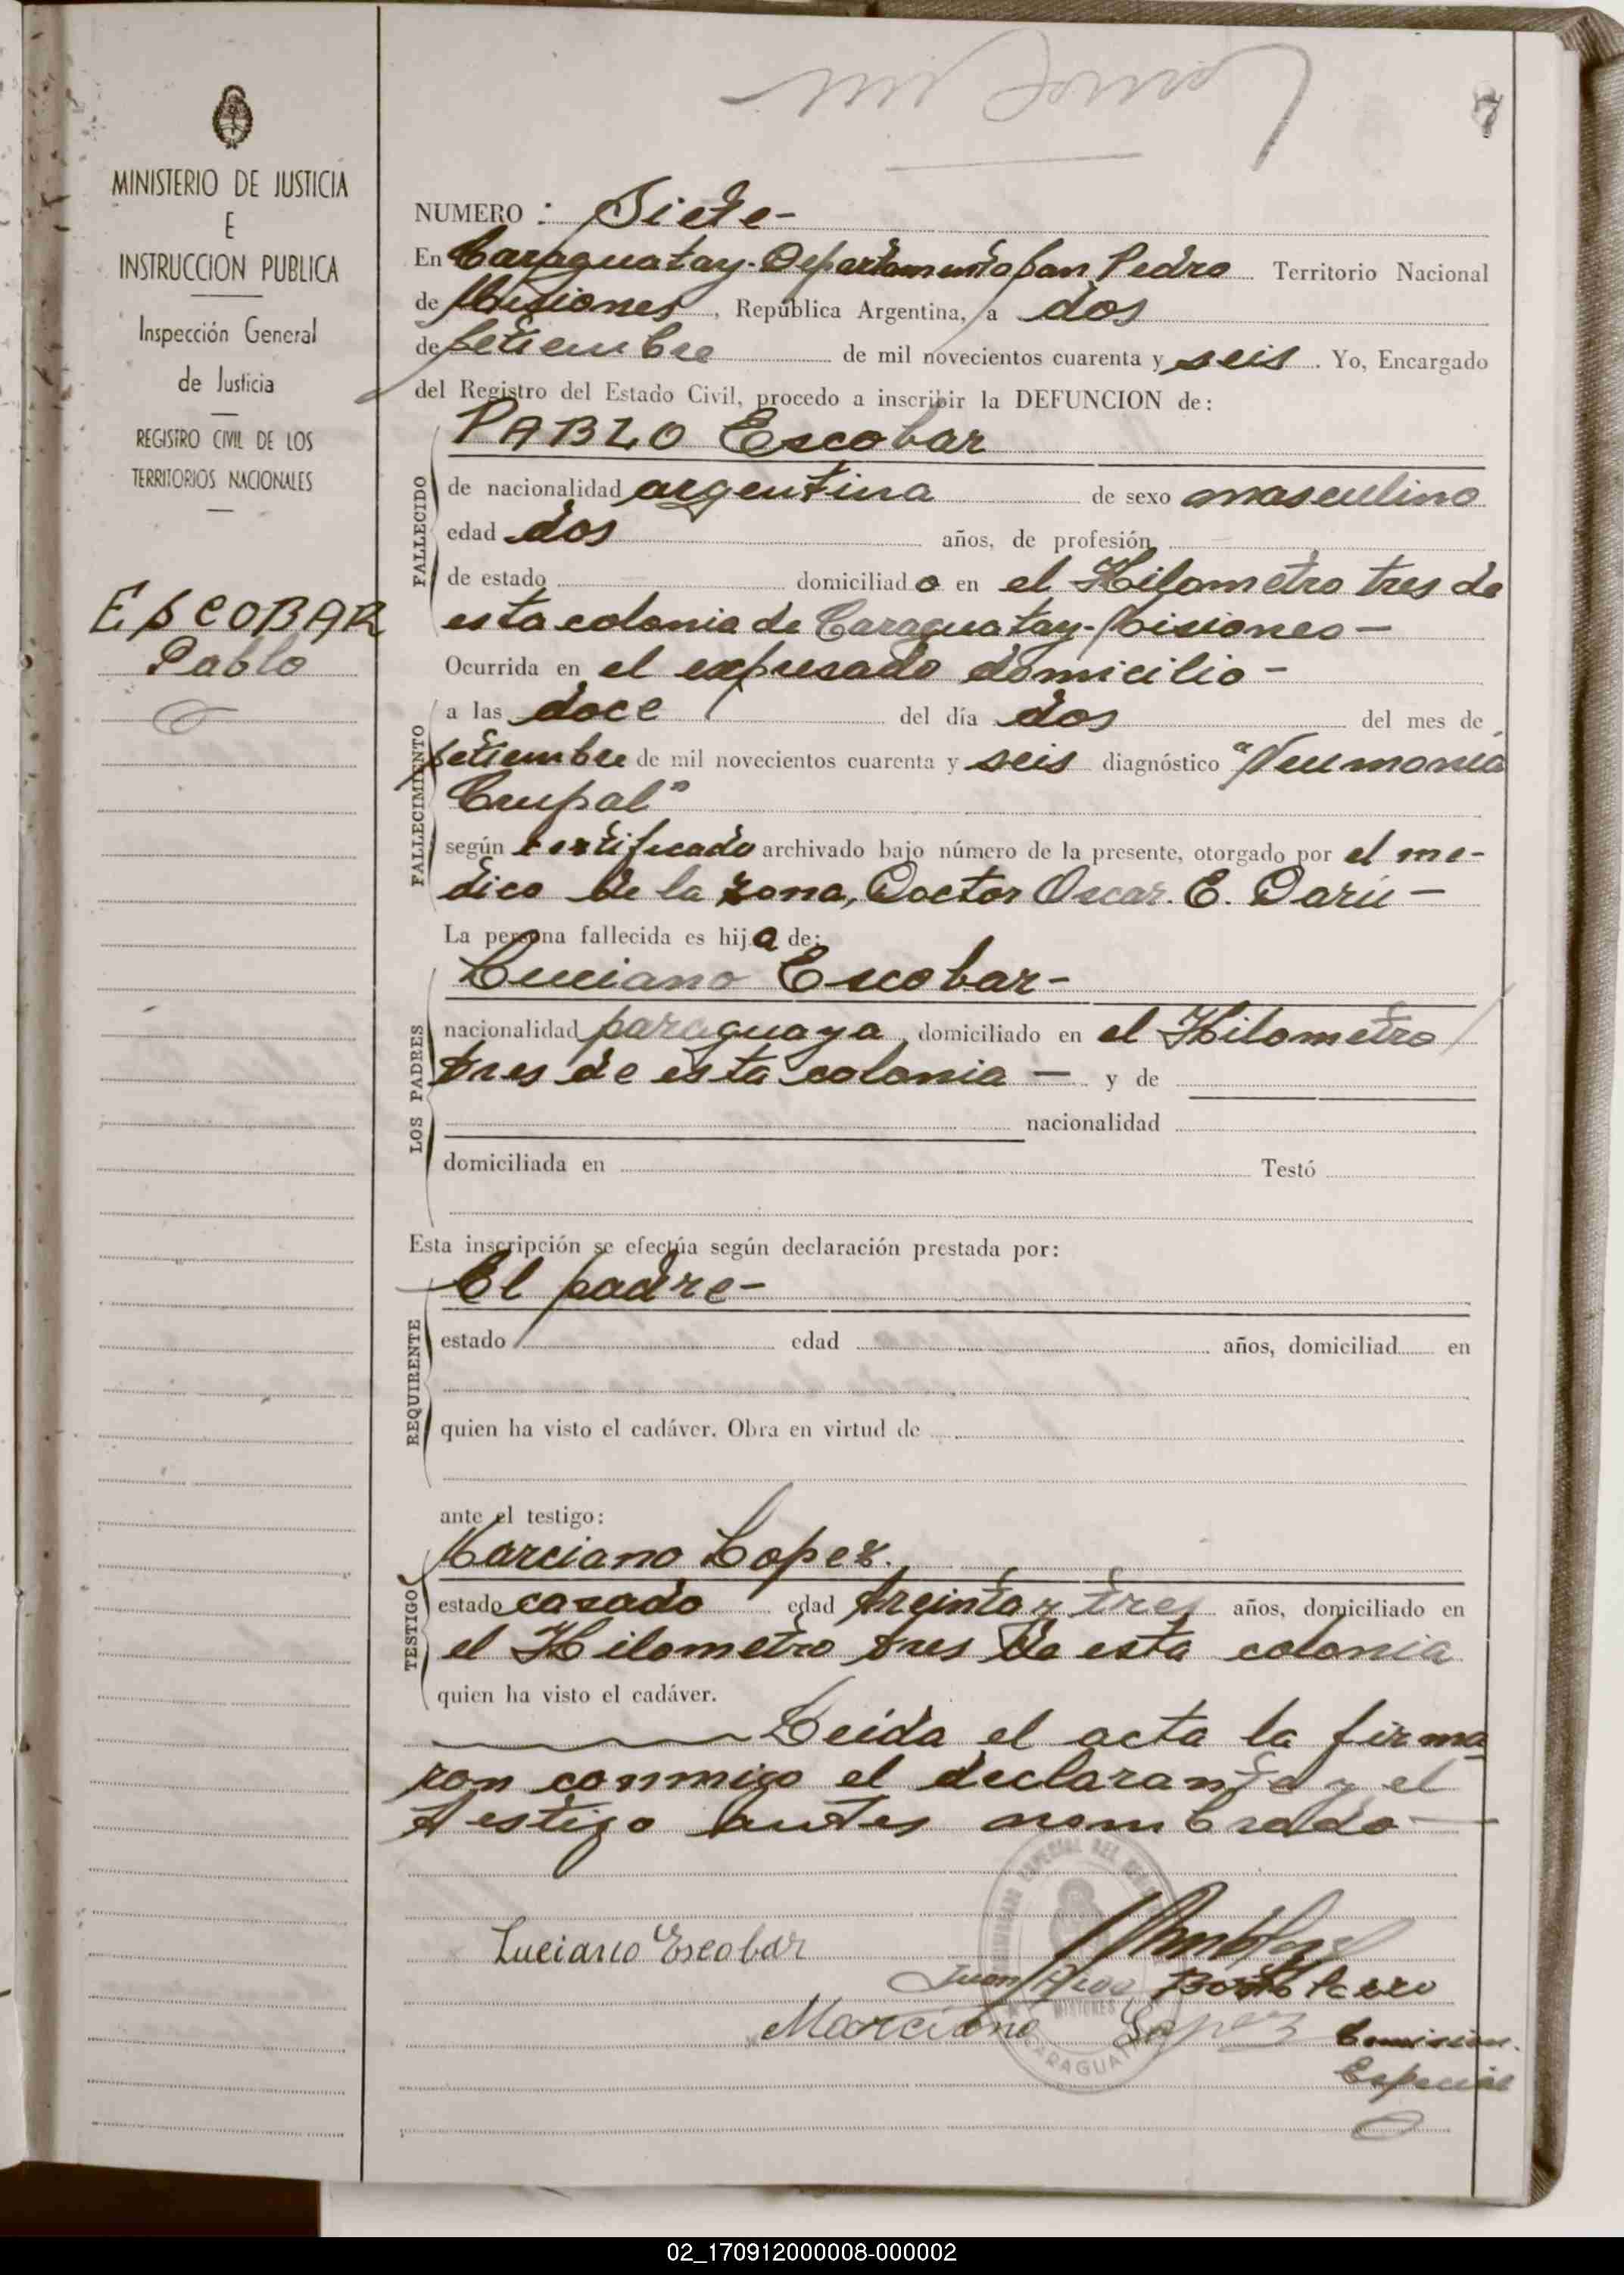 7
MINISTERIO DE JUSTICIA
E
INSTRUCCION PUBLICA
Inspección General
de Justicia
REGISTRO CIVIL DE LOS
TERRITORIOS NACIONALES
ESCOBAR
Pablo
NUMERO : Siete-
En Caraguatay-Departamento San Pedro Territorio Nacional
de Misiones, República Argentina, a dos
de setiembre de mil novecientos cuarenta y seis. Yo, Encargado
del Registro del Estado Civil, procedo a inscribir la DEFUNCION de:
PABLO Escobar
FALLECIDO
de nacionalidad argentina de sexo masculino
edad dos años, de profesión
de estado domiciliado en el Kilometro tres de
esta colonia de Caraguatay-Misiones-
Ocurrida en el expresado domicilio-
FALLECIMIENTO
a las doce del día dos del mes de
setiembre de mil novecientos cuarenta y seis diagnóstico "Neumonia
Crupal"
según certificado archivado bajo número de la presente, otorgado por el me-
dico de la zona, Doctor Oscar. E. Darú-
La persona fallecida es hijo de:
LOS PADRES
Luciano Escobar-
nacionalidad paraguaya, domiciliado en el Kilometro
tres de esta colonia - y de
nacionalidad
domiciliada en Testó
Esta inscripción se efectúa según declaración prestada por:
REQUIRENTE
El padre-
estado edad años, domiciliad en
quien ha visto el cadáver. Obra en virtud de
ante el testigo:
TESTIGO
Marciano Lopez.
estado casado edad treinta y tres años, domiciliado en
el Kilometro tres de esta colonia
quien ha visto el cadáver.
Leída el acta la firma
ron conmigo el declarante y el
testigo antes nombrado-
Luciano Escobar
Juan
Marciano Lopez Comision.
Especial
CARAGUATAY
MISIONES
02_170912000008-000002